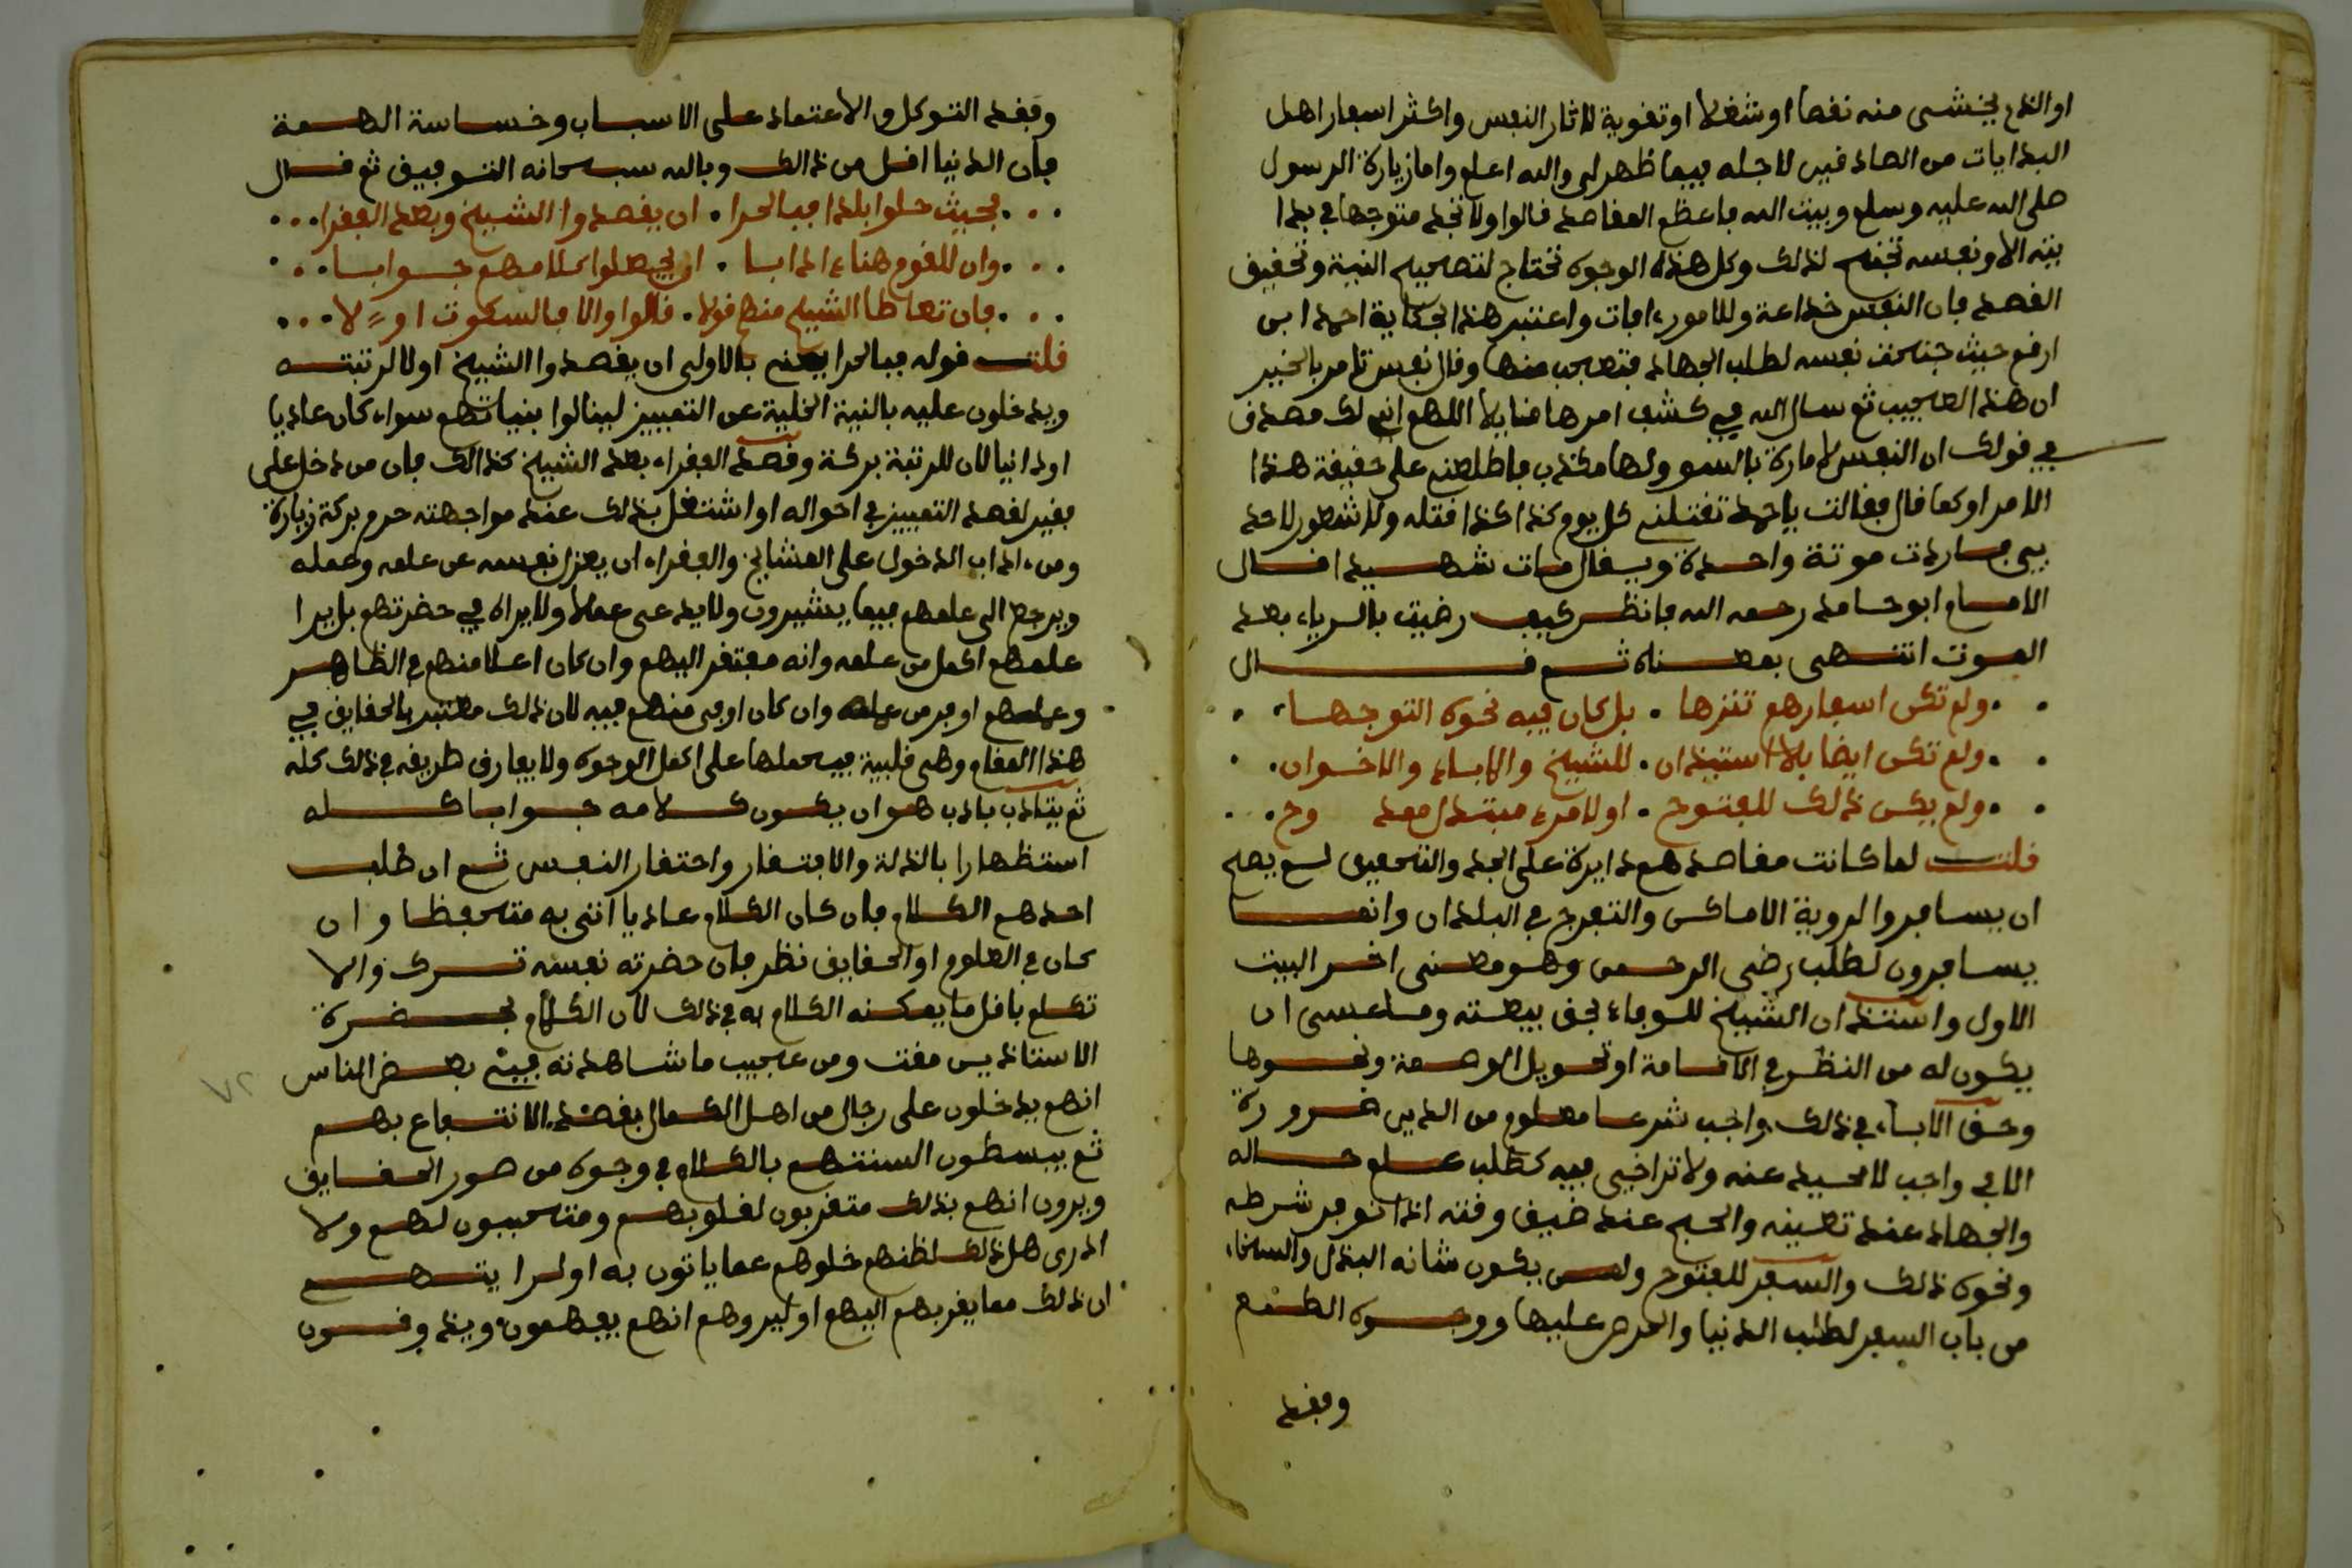 او الذي يخشى منه نقصا او شغلا او تقوية لاثار النفس واكثر اسفار اهل
البدايات من الصادقين لاجله فيما ظهر لي والله اعلم واما زيارة الرسول
صلى الله عليه وسلم وبيت الله فاعظم المقاصد قالوا ولا تجد متوجها في بدا
يته الا ونفسه تجنح لذلك وكل هذه الوجوه تحتاج لتصحيح النية وتحقيق
القصد فان النفس خداعة وللامور ءافات واعتبر هذا بحكاية احمد ابن
ارقم حيث جنحت نفسه لطلب الجهاد فتعجب منها وقال نفس تامر بالخير
ان هذا لعجيب ثم سال الله في كشف امرها قايلا اللهم اني لك مصدق
في قولك ان النفس لامارة بالسوء ولها مكذب فاطلعني على حقيقة هذا
الامر او كما قال فقالت يا احمد تقتلني كل يوم كذا كذا قتله ولا شعور لاحد
بي فاردت موتة واحدة ويقال مات شهيدا قال
الامام ابو حامد رحمه الله فانظر كيف رضيت بالرياء بعد
الموت انتهى بمعناه ثم قال
ولم تكن اسفارهم تنزها . بل كان فيه نحوه التوجها
ولم تكن ايضا بلا استيذان . للشيخ والاباء والاخوان
ولم يكن ذلك للفتوح . او لامرء مبتذل معد وح
قلت لما كانت مقاصدهم دايرة على الجد والتحقيق لم يصح
ان يسافروا لروية الاماكن والتفرج في البلدان وانما
يسافرون لطلب رضى الرحمن وهو معنى اخر البيت
الاول واستئذان الشيخ للوفاء بحق بيعته وما عسى ان
يكون له من النظر في الاقامة او تحويل الوجهة ونحوها
وحق الاباء في ذلك واجب شرعا معلوم من الدين ضرورة
الا في واجب لا محيد عنه ولا تراخي فيه كطلب علم حاله
والجهاد عند تعينه والحج عند ضيق وقته اذا توفر شرطه
ونحوه ذلك والسفر للفتوح ولمن يكون شانه البذل والسخاء
من باب السفر لطلب الدنيا والحرص عليها ووجوه الطمع
وفقد
وفقد التوكل والاعتماد على الاسباب وخساسة الهمة
فان الدنيا اقل من ذالك وبالله سبحانه التوفيق ثم قال
فحيث حلوا بلدا فبالحرا . ان يقصدوا الشيخ وبعد الفقرا
وان للقوم هنا ءادابا . ان يجعلوا كلامهم جوابا
فان تعاطا الشيخ منهم قولا . قالوا والا فالسكوت اولا
قلت قوله فبالحرا يعني بالاولى ان يقصدوا الشيخ اولا لرتبته
ويدخلون عليه بالنية الخلية عن التمييز لينالوا بنياتهم سواء كان عاليا
او دانيا لان للرتبة بركة وقصد الفقراء بعد الشيخ كذالك فان من دخل على
فقير لقصد التمييز في احواله او اشتغل بذلك عند مواجهته حرم بركة زيارة
ومن ءاداب الدخول على المشايخ والفقراء ان يعزل نفسه عن علمه وعمله
ويرجع الى علمهم فيما يشيرون ولا يدعى عملا ولا يراه في حضرتهم بل يرا
علمهم اكمل من علمه وانه مفتقر اليهم وان كان اعلا منهم في الظاهر
وعملهم اوفر من عمله وان كان اوفى منهم فيه لان ذلك معتبر بالحقايق في
هذا المقام وهي قلبية فيحملها على اكمل الوجوه ولا يفارق طريقه في ذلك كله
ثم يتادب بادب هو ان يكون كلامه جوابا كله
استظهارا بالذلة والافتقار واحتقار النفس ثم ان طلب
احدهم الكلام فان كان الكلام عاديا اتى به متحفظا وان
كان في العلوم او الحقايق نظر فان حضرته نفسه ترك والا
تكلم باقل ما يمكنه الكلام به في ذلك لان الكلام بحضرة
الاستاذين مقت ومن عجيب ما شاهدته في بعض الناس
انهم يدخلون على رجال من اهل الكمال بقصد الانتفاع بهم
ثم يبسطون السنتهم بالكلام في وجوه من صور الحقايق
ويرون انهم بذلك متقربون لقلوبهم ومتحببون لهم ولا
ادري هل ذلك لظنهم خلوهم عما ياتون به او لرايتهم
ان ذلك مما يقربهم اليهم او ليروهم انهم يفهمون ويذوقون